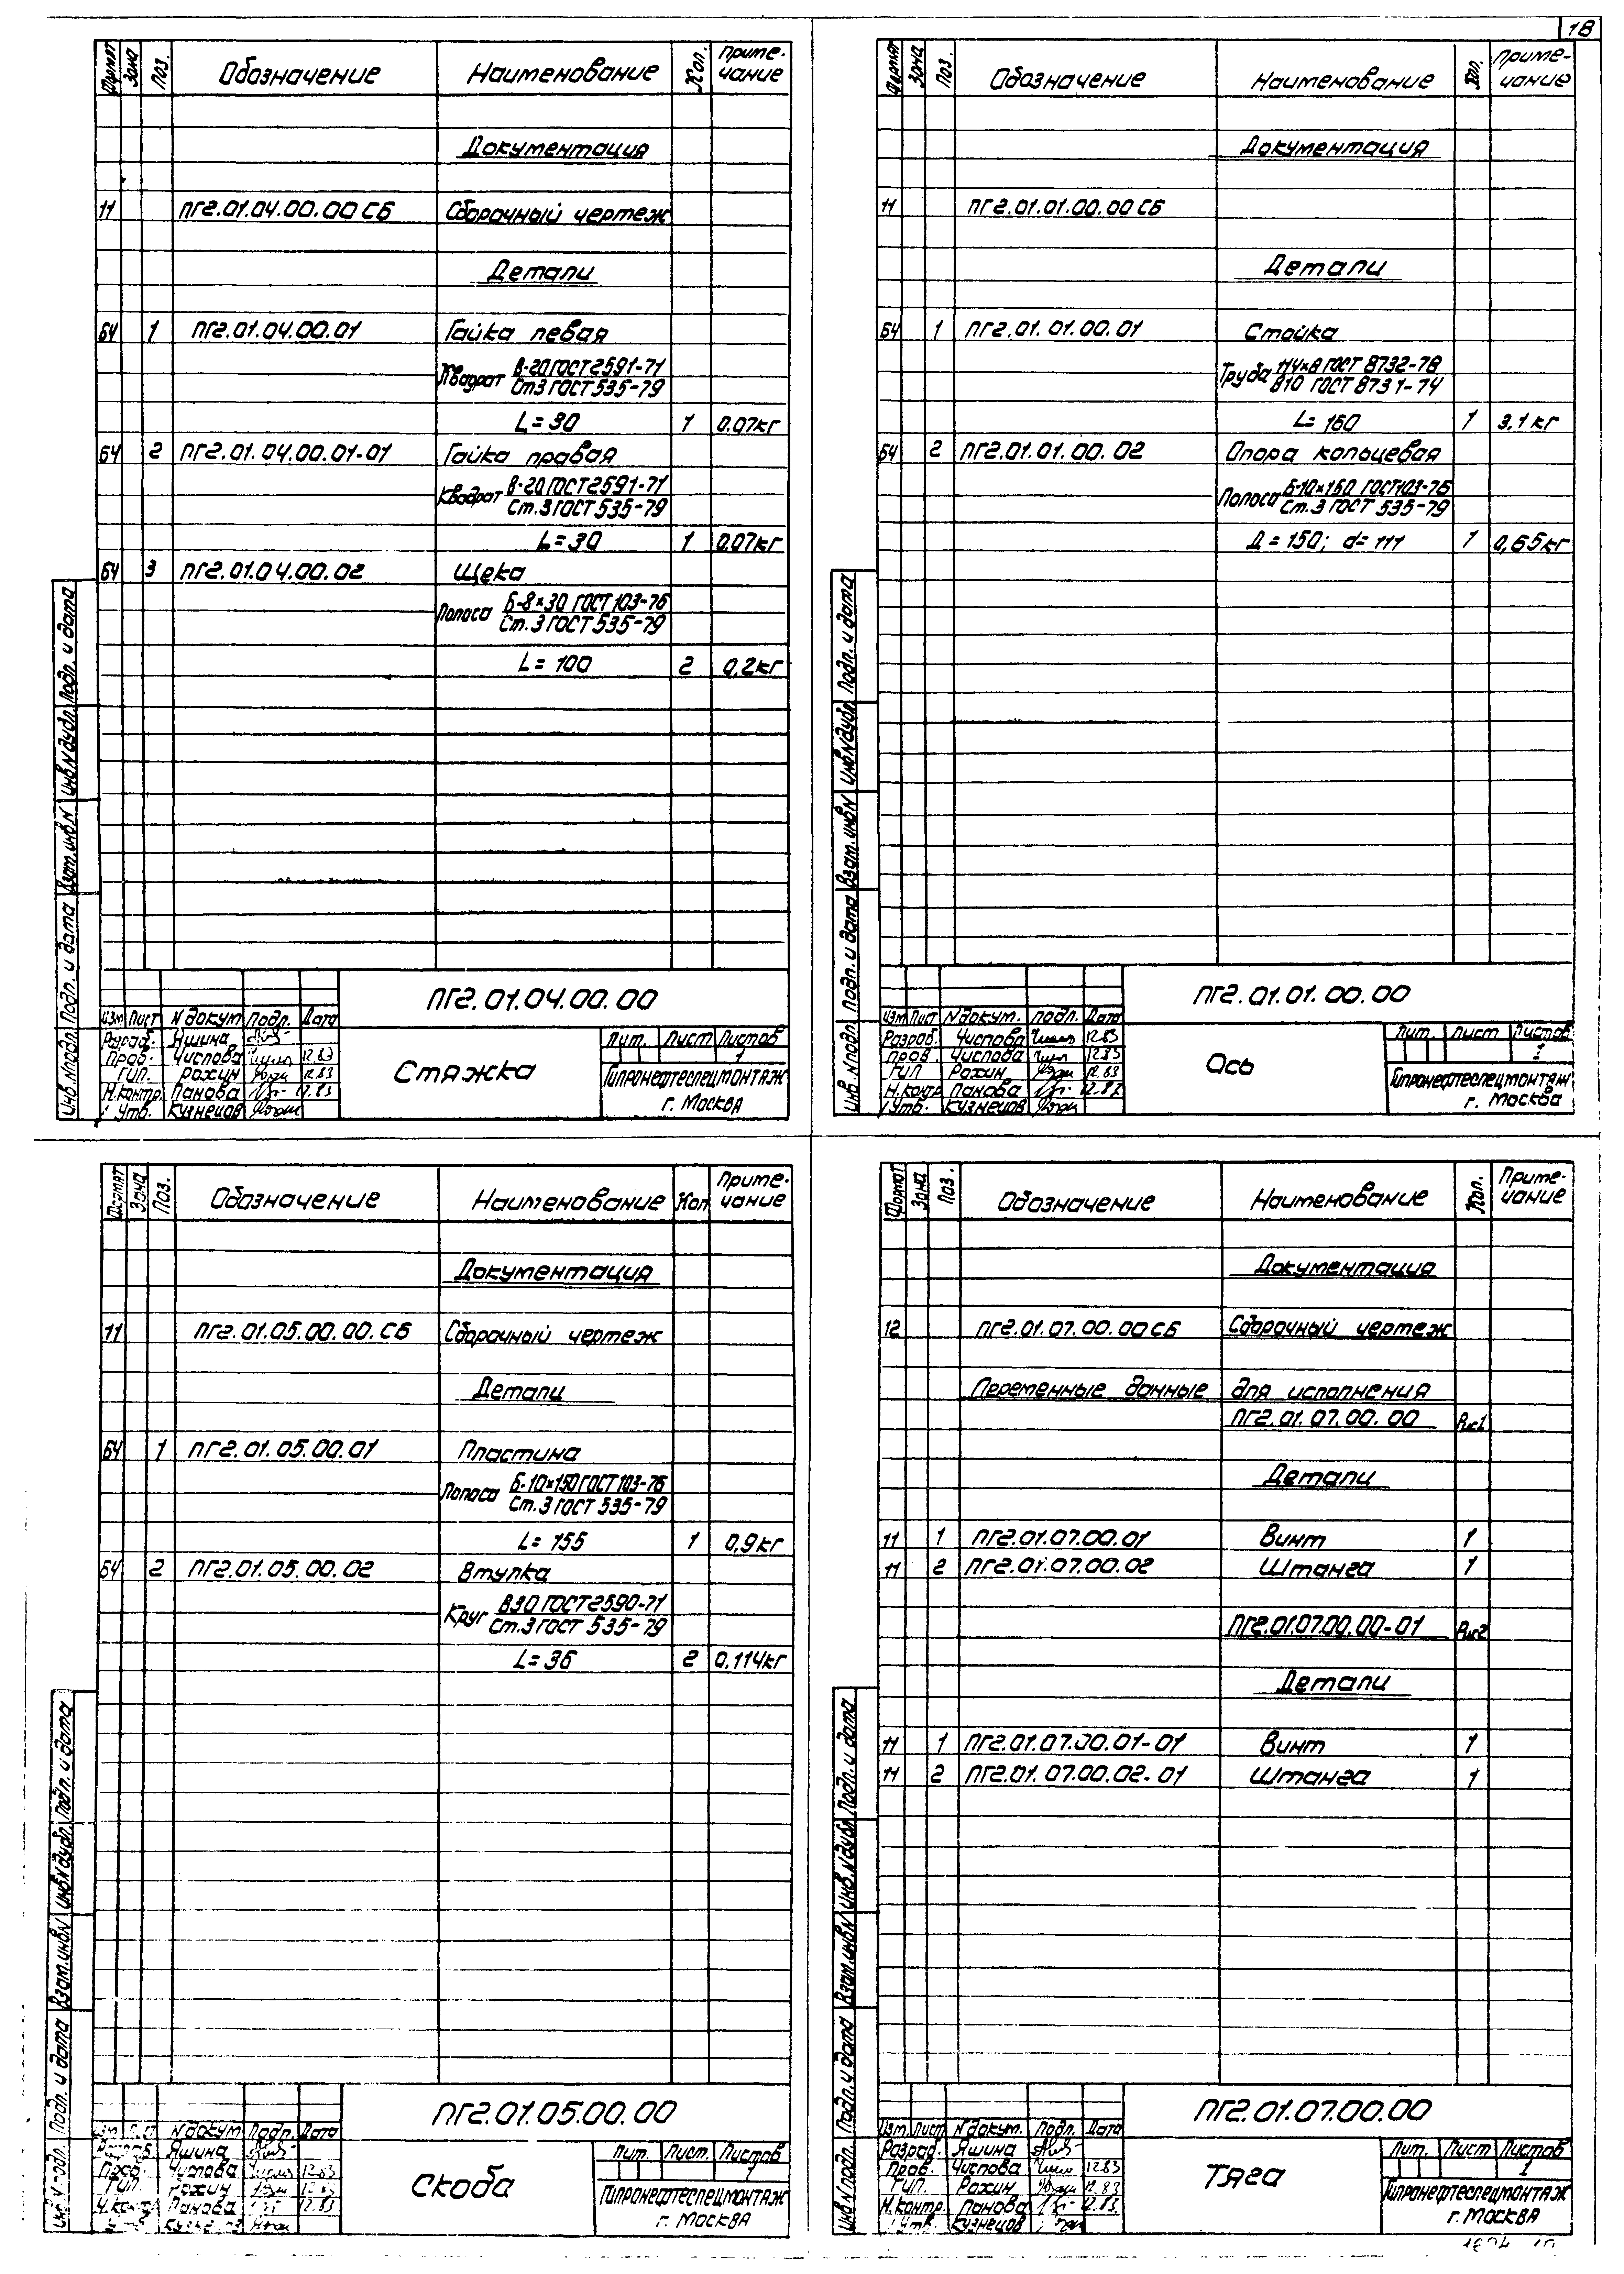 18
Формат Зона Поз. Обозначение Наименование Кол. Приме-
чание
Документация
11 ПГ2.01.04.00.00 СБ Сборочный чертеж
Детали
БЧ 1 ПГ2.01.04.00.01 Гайка левая
Квадрат В-20 ГОСТ 2591-71
Ст3 ГОСТ 535-79
L=30 1 0.07кг
БЧ 2 ПГ2.01.04.00.01-01 Гайка правая
Квадрат В-20 ГОСТ 2591-71
Ст.3 ГОСТ 535-79
L=30 1 0.07кг
БЧ 3 ПГ2.01.04.00.02 Щека
Полоса Б-8×30 ГОСТ 103-76
Ст.3 ГОСТ 535-79
L=100 2 0,2кг
Инв.Nподл. Подп. и дата Взам.инвN ИнвNдубл. Подп. и дата
ПГ2.01.04.00.00
Изм Лист Nдокум Подп. Дата
Разраб. Яшина
Пров. Числова 12.83
ГИП. Рохин 12.83
Н.контр. Панова 12.83
Утв. Кузнецов
Стяжка
Лит. Лист Листов
1
Гипронефтеспецмонтаж
г. Москва
Формат Зона Поз. Обозначение Наименование Кол. Приме-
чание
Документация
11 ПГ2.01.01.00.00 СБ
Детали
БЧ 1 ПГ2.01.01.00.01 Стойка
Труба 114×8 ГОСТ 8732-78
В10 ГОСТ 8731-74
L=160 1 3,1кг
БЧ 2 ПГ2.01.01.00.02 Опора кольцевая
Полоса Б-10×150 ГОСТ 103-76
Ст.3 ГОСТ 535-79
Д=150; d=111 1 0,65кг
Инв.Nподл. Подп. и дата Взам.инвN ИнвNдубл Подп. и дата
ПГ2.01.01.00.00
Изм Лист Nдокум. Подп. Дата
Разраб. Числова 12.83
Пров Числова 12.83
ГИП Рохин 12.83
Н.контр Панова 12.83
Утв. Кузнецов
Ось
Лит. Лист Листов
1
Гипронефтеспецмонтаж
г. Москва
Формат Зона Поз. Обозначение Наименование Кол Приме-
чание
Документация
11 ПГ2.01.05.00.00.СБ Сборочный чертеж
Детали
БЧ 1 ПГ2.01.05.00.01 Пластина
Полоса Б-10×150 ГОСТ 103-76
Ст.3 ГОСТ 535-79
L=155 1 0,9кг
БЧ 2 ПГ2.01.05.00.02 Втулка
Круг В30 ГОСТ 2590-71
Ст.3 ГОСТ 535-79
L=36 2 0,114кг
Инв.Nподл. Подп. и дата Взам.инвN ИнвNдубл. Подп. и дата
ПГ2.01.05.00.00
Изм Лист Nдокум Подп. Дата
Разраб. Яшина
Пров. Числова 12.83
ГИП. Рохин 12.83
Н.контр Панова 12.83
Скоба
Лит. Лист. Листов
1
Гипронефтеспецмонтаж
г. Москва
Формат Зона Поз. Обозначение Наименование Кол. Приме-
чание
Документация
12 ПГ2.01.07.00.00СБ Сборочный чертеж
Переменные данные для исполнения
ПГ2.01.07.00.00 Рис1
Детали
11 1 ПГ2.01.07.00.01 Винт 1
11 2 ПГ2.01.07.00.02 Штанга 1
ПГ2.01.07.00.00-01 Рис2
Детали
11 1 ПГ2.01.07.00.01-01 Винт 1
11 2 ПГ2.01.07.00.02-01 Штанга 1
Инв.Nподл. Подп. и дата Взам.инвN Инв.Nдубл. Подп. и дата
ПГ2.01.07.00.00
Изм Лист Nдокум. Подп. Дата
Разраб. Яшина
Пров. Числова 12.83
ГИП. Рохин 12.83
Н.контр. Панова 12.83
Утв. Кузнецов
Тяга
Лит. Лист Листов
1
Гипронефтеспецмонтаж
г. Москва